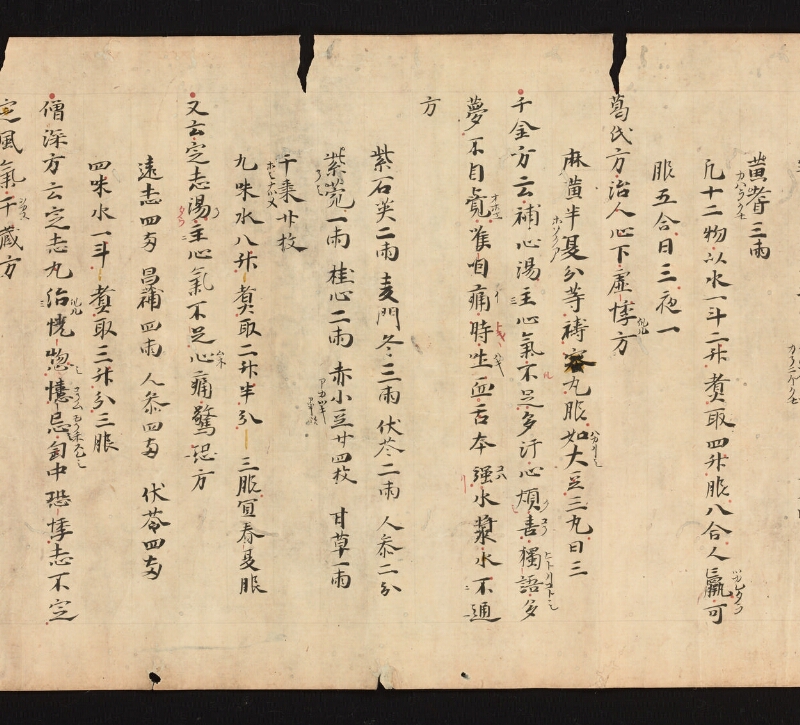 黄耆三兩
凡十二物以水一斗二升煮取四升服八合人羸可
服五合日三夜一
葛氏方治人心下虚悸方
麻黄半夏分等擣蜜丸服如大豆三丸日三
千金方云補心湯主心氣不足多汗心煩喜獨語多
夢不自覺咽痛時吐血舌本強水漿水不通
方
紫石英二兩麦門冬三兩伏苓二兩人参二分
紫菀一兩桂心二兩赤小豆廿四枚甘草一兩
干棗廿枚
九味水八升煮取二升半分三服冝春夏服
又云定志湯主心氣不足心痛驚恐方
遠志四兩昌蒲四兩人参四兩伏苓四兩
四味水一斗煮取三升分三服
僧深方云定志丸治恍惚憶忌匈中恐悸志不定
定風氣干蔵方